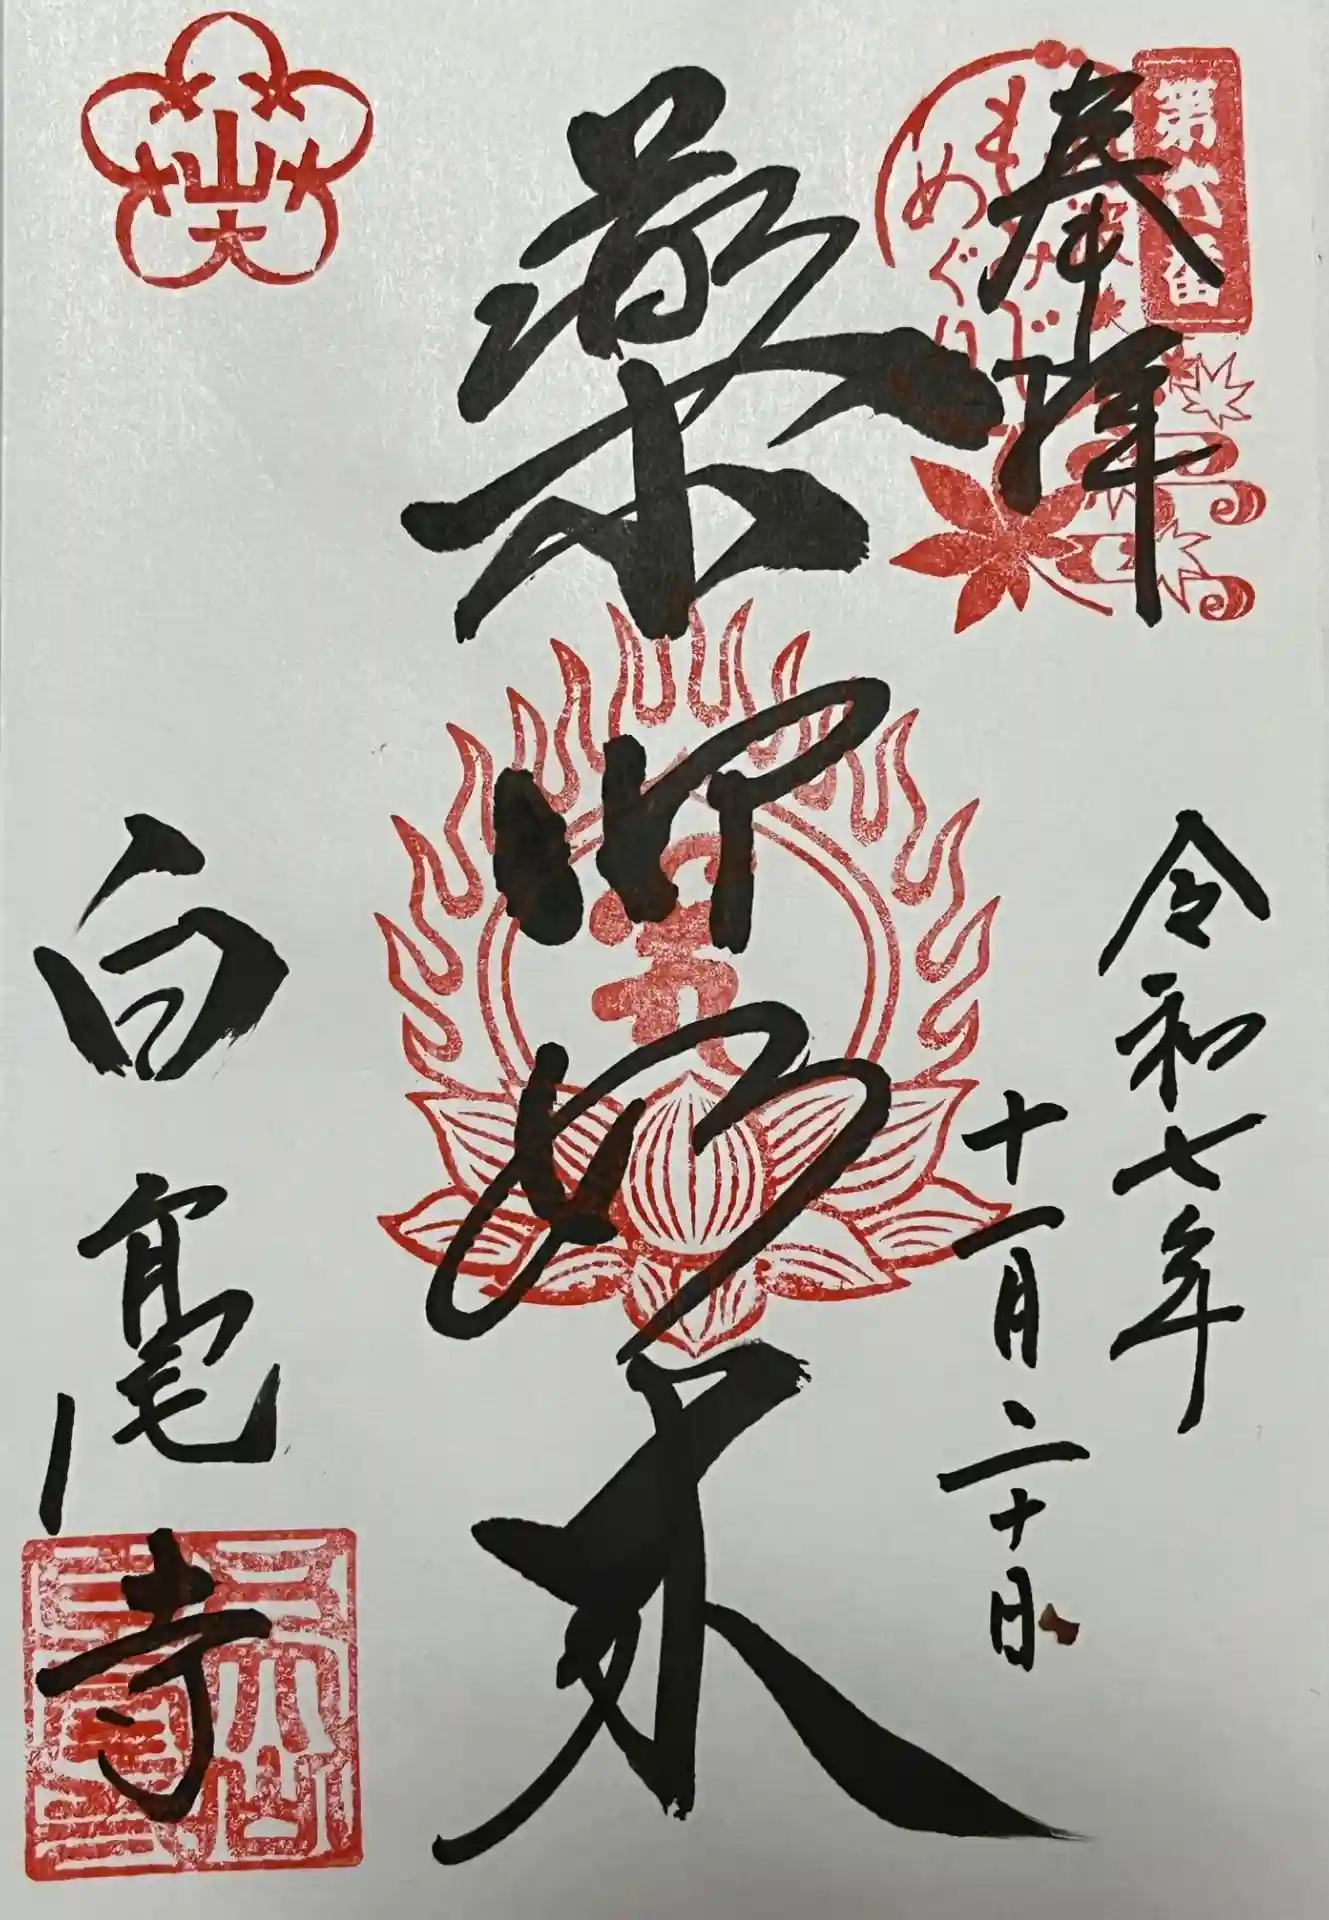 第六番
もみじ
めぐり
奉拝
令和七年
十一月二十日
薬師如来
白毫寺